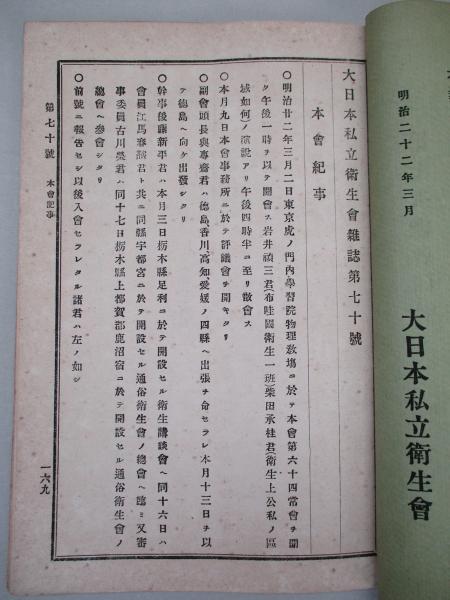 明治二十二年三月
大日本私立衛生會
大日本私立衛生會雜誌第七十號
本會紀事
○明治廿二年三月二日東京虎ノ門內學習院物理敎塲ニ於テ本會第六十四常會ヲ開
ク午後一時ヲ以テ開會ス岩井禎三君(布哇國衛生一班)柴田承桂君(衛生上公私ノ區
域如何)ノ演說アリ午後四時半ニ至リ散會ス
○本月九日本會事務所ニ於テ評議會ヲ開キタリ
○副會頭長與專齋君ハ德島、香川、高知、愛媛ノ四縣ヘ出張ヲ命セラレ本月十三日ヲ以
テ德島ヘ向ケ出發シタリ
○幹事後藤新平君ハ本月三日栃木縣足利ニ於テ開設セル衛生講談會ヘ同十六日ハ
會員江馬春凞君ト共ニ同縣宇都宮ニ於テ開設セル通俗衛生會ノ總會ヘ臨ミ又審
事委員古川榮君ハ同十七日栃木縣上都賀郡鹿沼宿ニ於テ開設セル通俗衛生會ノ
總會ヘ參會シタリ
○前號ニ報告セシ以後入會セラレタル諸君ハ左ノ如シ
第七十號 本會記事
一六九